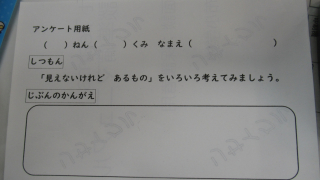 アンケート用紙
（　　）ねん（　　　）くみ　なまえ（　　　　　　　　　）
しつもん
「見えないけれど　あるもの」をいろいろ考えてみましょう。
じぶんのかんがえ